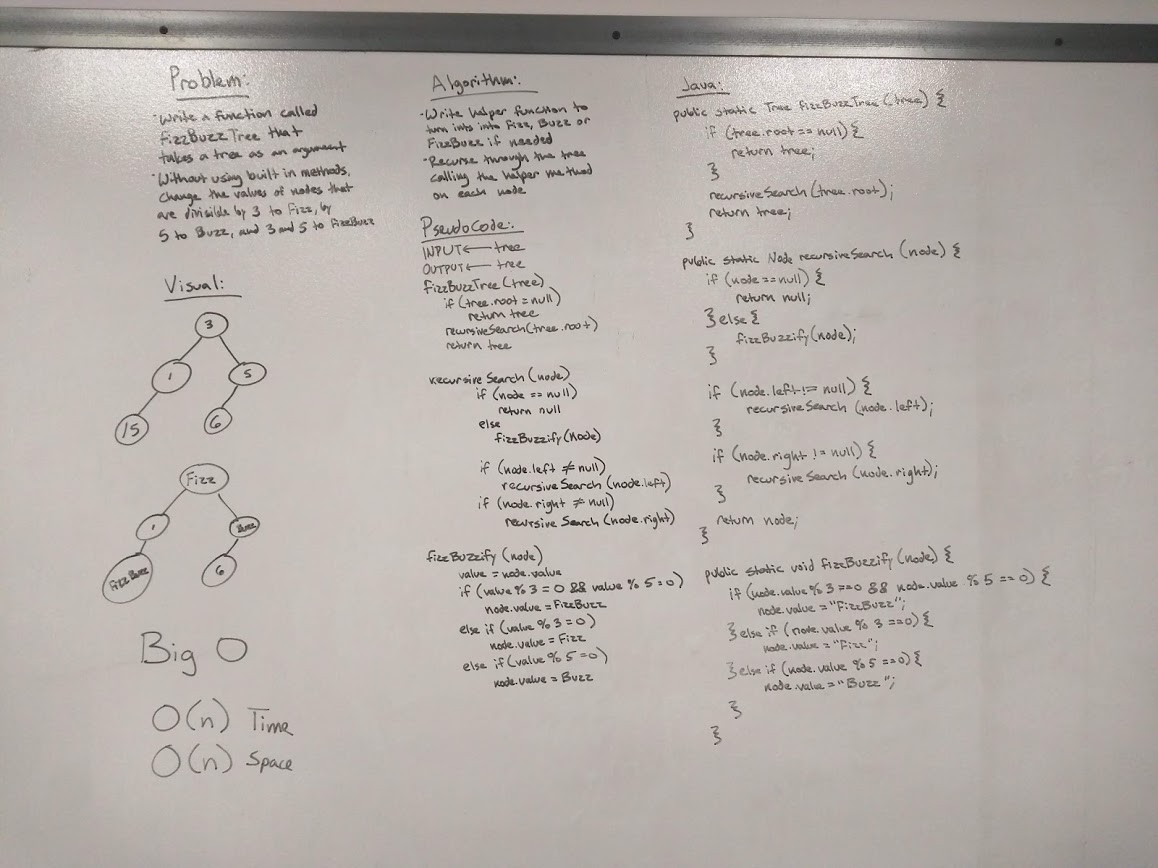 Problem:
·Write a function called
FizzBuzzTree that
takes a tree as an argument
·Without using built in methods,
change the values of nodes that
are divisible by 3 to Fizz, by
5 to Buzz, and 3 and 5 to FizzBuzz
Visual:
3
1 5
15 6
Fizz
1 Buzz
FizzBuzz 6
Big O
O(n) Time
O(n) Space
Algorithm:
·Write helper function to
turn ints into Fizz, Buzz or
FizzBuzz if needed
·Recurse through the tree
calling the helper method
on each node
PseudoCode:
INPUT ← tree
OUTPUT ← tree
FizzBuzzTree (tree)
if (tree.root = null)
return tree
recursiveSearch(tree.root)
return tree
recursiveSearch (node)
if (node == null)
return null
else
fizzBuzzify (node)
if (node.left ≠ null)
recursiveSearch (node.left)
if (node.right ≠ null)
recursiveSearch (node.right)
fizzBuzzify (node)
value = node.value
if (value % 3 = 0 && value % 5 = 0)
node.value = FizzBuzz
else if (value % 3 = 0)
node.value = Fizz
else if (value % 5 = 0)
node.value = Buzz
Java:
public static Tree fizzBuzzTree (tree) {
if (tree.root == null) {
return tree;
}
recursiveSearch(tree.root);
return tree;
}
public static Node recursiveSearch (node) {
if (node == null) {
return null;
} else {
fizzBuzzify (node);
}
if (node.left != null) {
recursiveSearch (node.left);
}
if (node.right != null) {
recursiveSearch (node.right);
}
return node;
}
public static void fizzBuzzify (node) {
if (node.value % 3 == 0 && node.value % 5 == 0) {
node.value = "FizzBuzz";
} else if (node.value % 3 == 0) {
node.value = "Fizz";
} else if (node.value % 5 == 0) {
node.value = "Buzz";
}
}